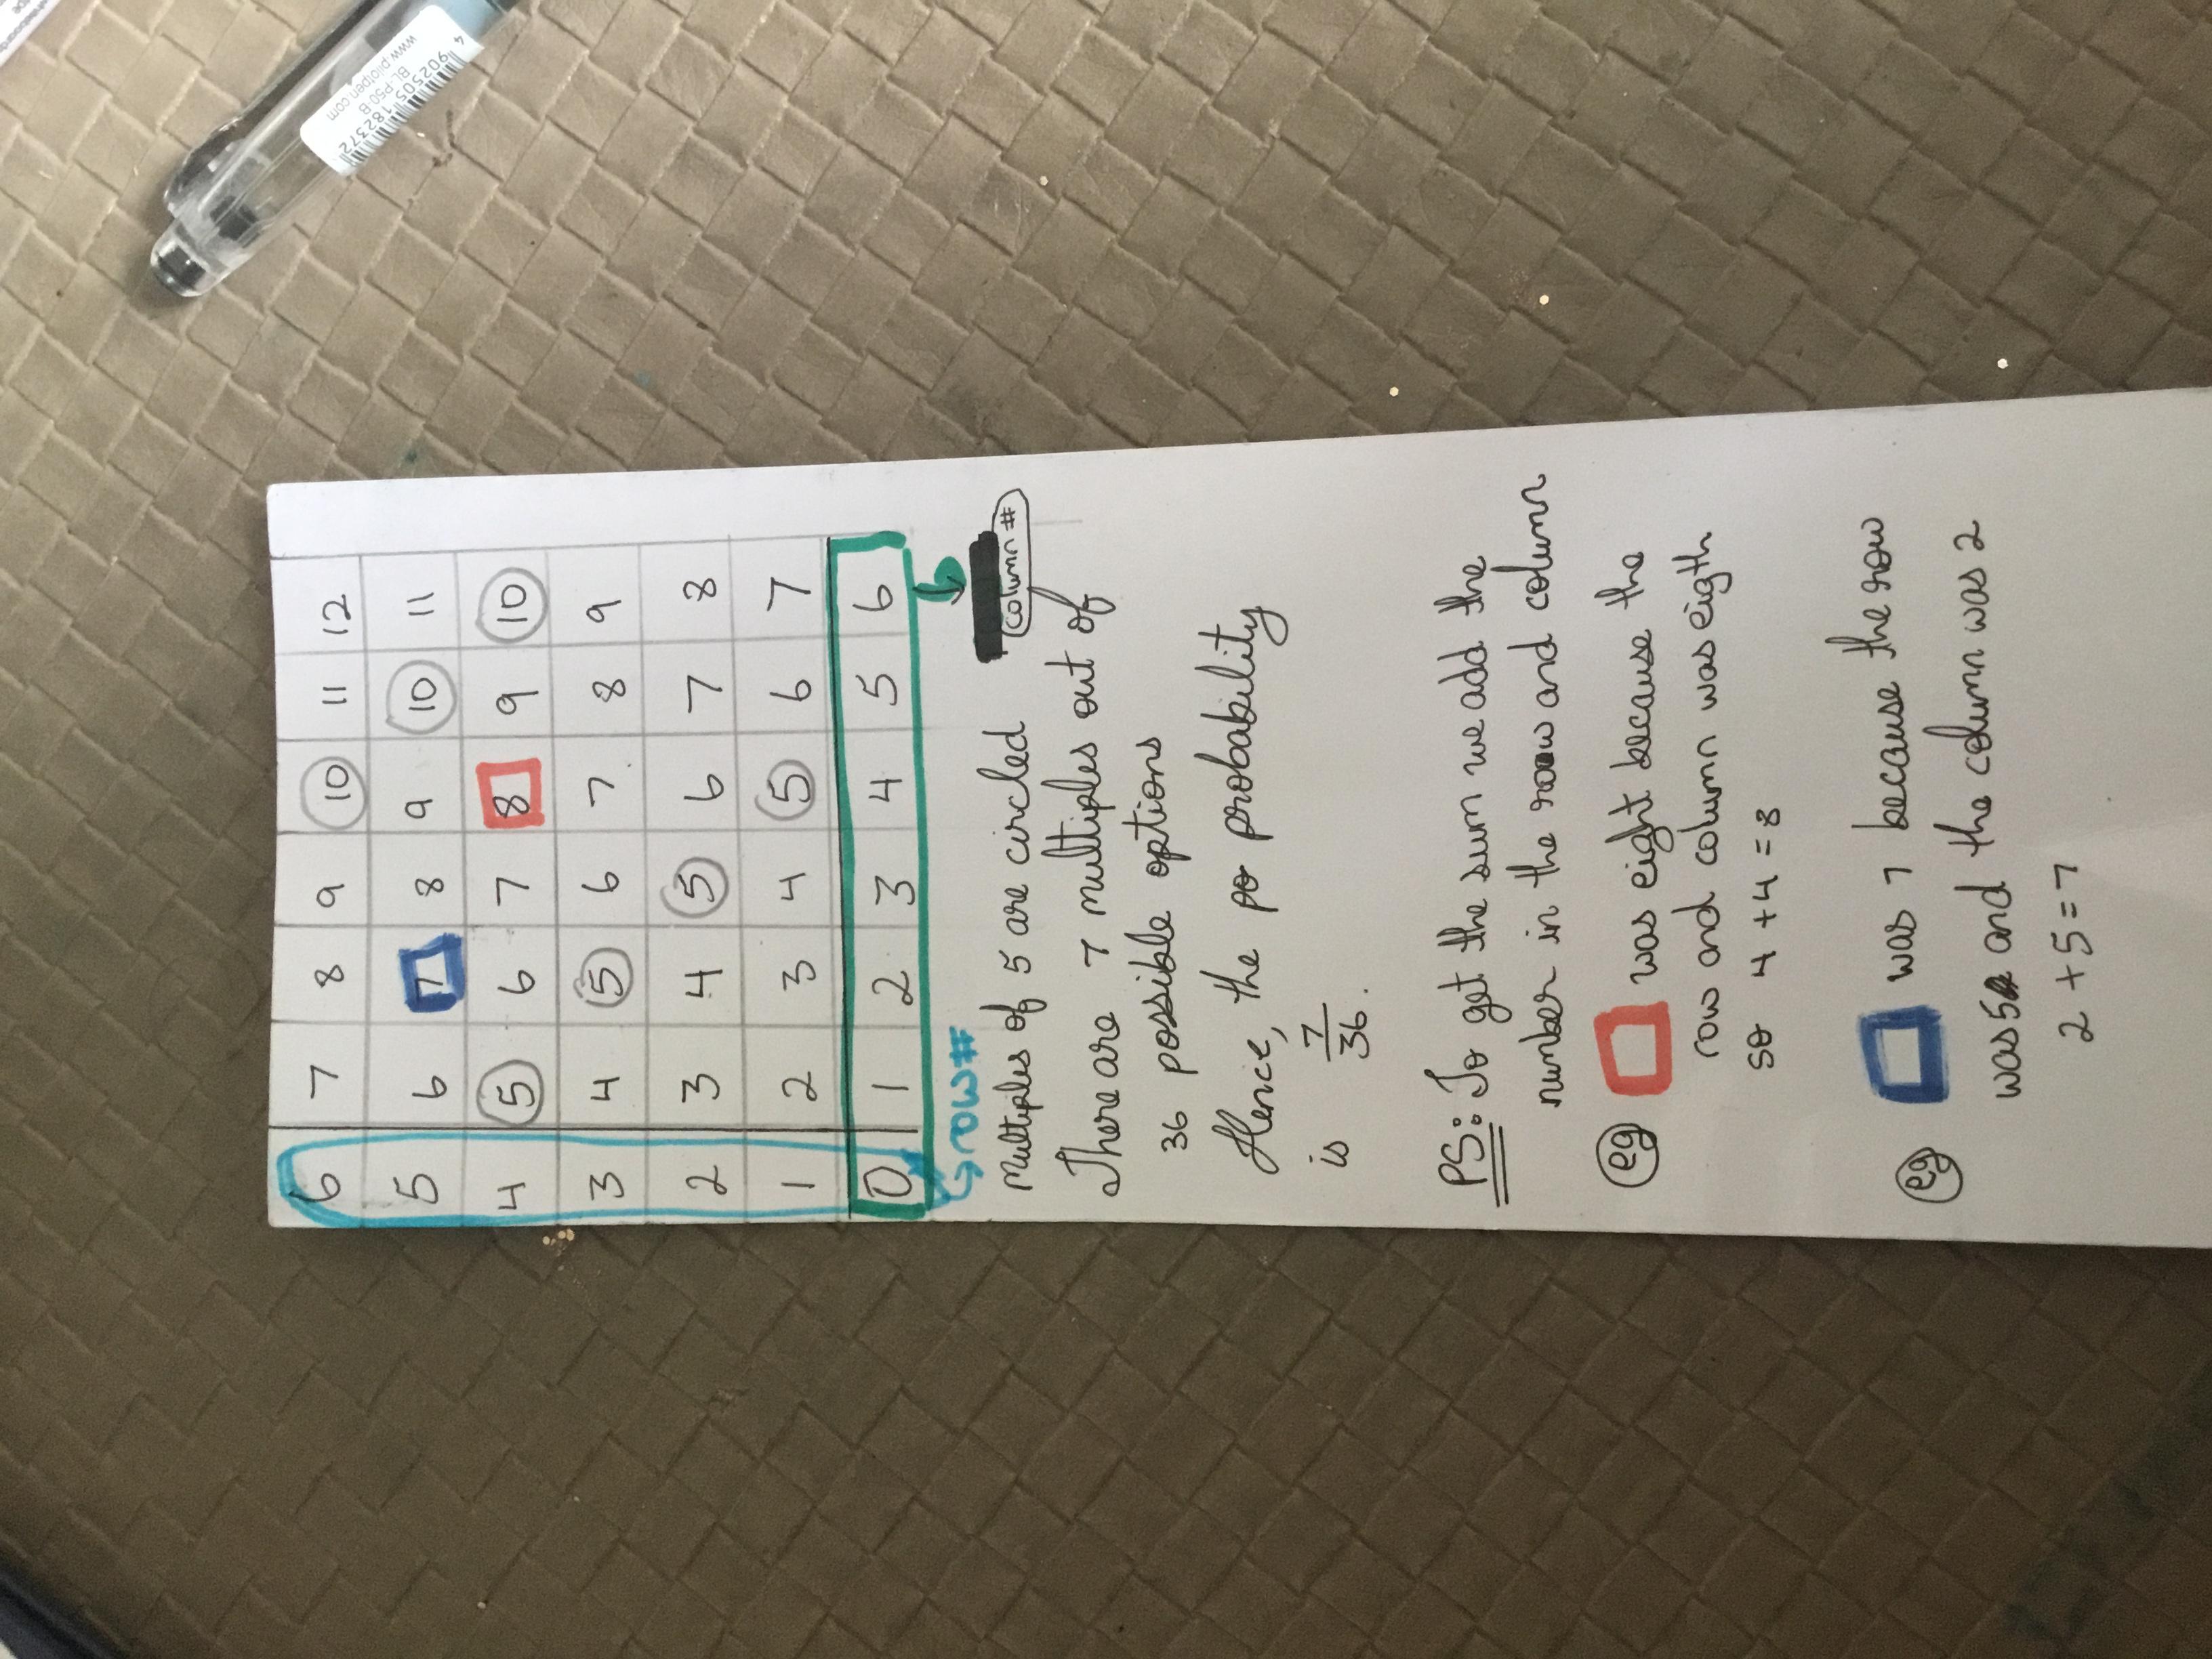 6 7 8 9 10 11 12
5 6 7 8 9 10 11
4 5 6 7 8 9 10
3 4 5 6 7 8 9
2 3 4 5 6 7 8
1 2 3 4 5 6 7
0 1 2 3 4 5 6
row#
column #
Multiples of 5 are circled
There are 7 multiples out of
36 possible options
Hence, the po probability
is 7/36.
PS: To get the sum we add the
number in the row and column
eg was eight because the
row and column was eigth
so 4+4=8
eg was 7 because the row
was 5 and the column was 2
2+5=7
4 902505 182372
BL-P50-B
www.pilotpen.com